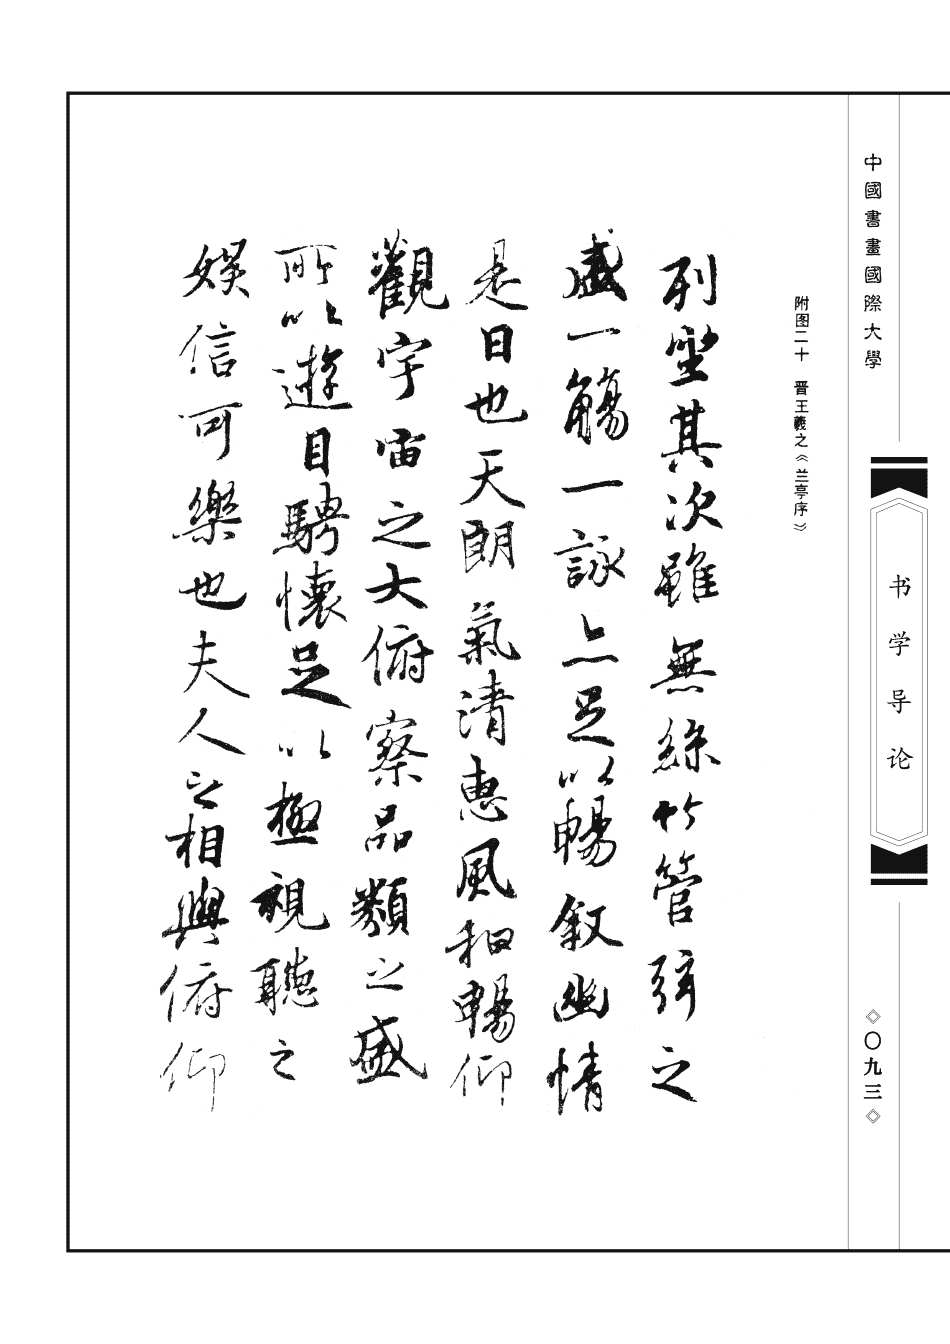 中國書畫國際大學
书学导论
◇〇九三◇
附图二十 晋王羲之《兰亭序》
列坐其次雖無絲竹管弦之
盛一觴一詠亦足以暢叙幽情
是日也天朗氣清惠風和暢仰
觀宇宙之大俯察品類之盛
所以遊目騁懷足以極視聽之
娛信可樂也夫人之相與俯仰